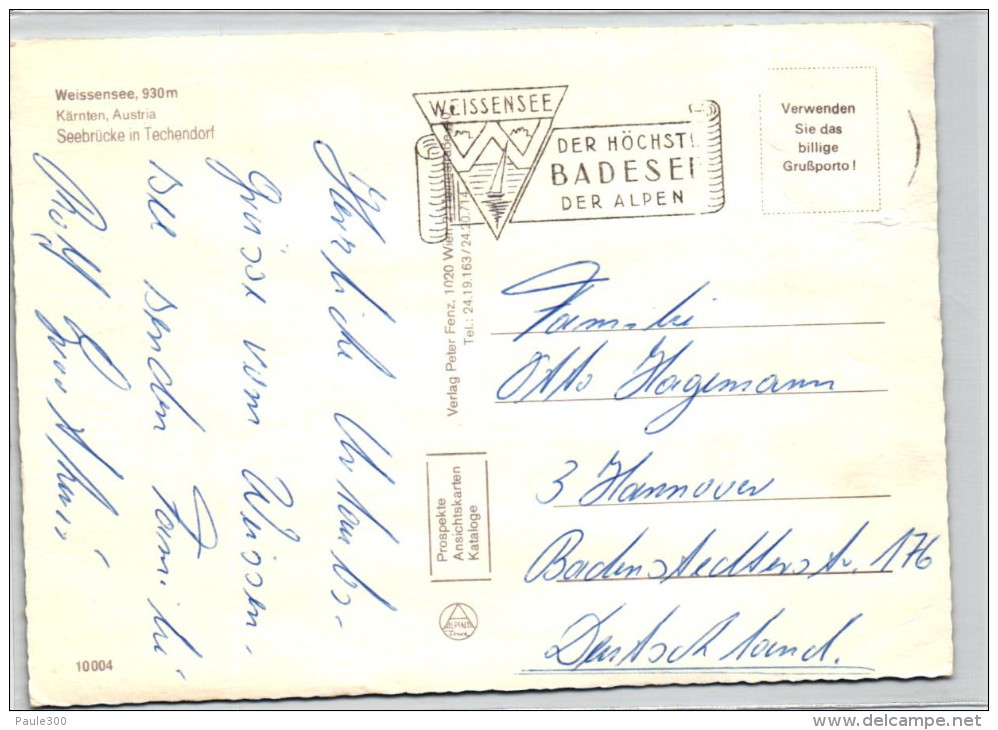 Weissensee, 930m
Kärnten, Austria
Seebrücke in Techendorf
WEISSENSEE
DER HÖCHSTE
BADESEE
DER ALPEN
Verwenden
Sie das
billige
Grußporto!
Herzliche Urlaubs-
grüsse vom Weissen-
see senden Familie
Verlag Peter Fenz, 1020 Wien
Tel.: 24.19.163/24.20.714
Prospekte
Ansichtskarten
Kataloge
Familie
Otto Hagemann
3 Hannover
Badenstedterstr. 176
Deutschland.
10004
Paule300
www.delcampe.net